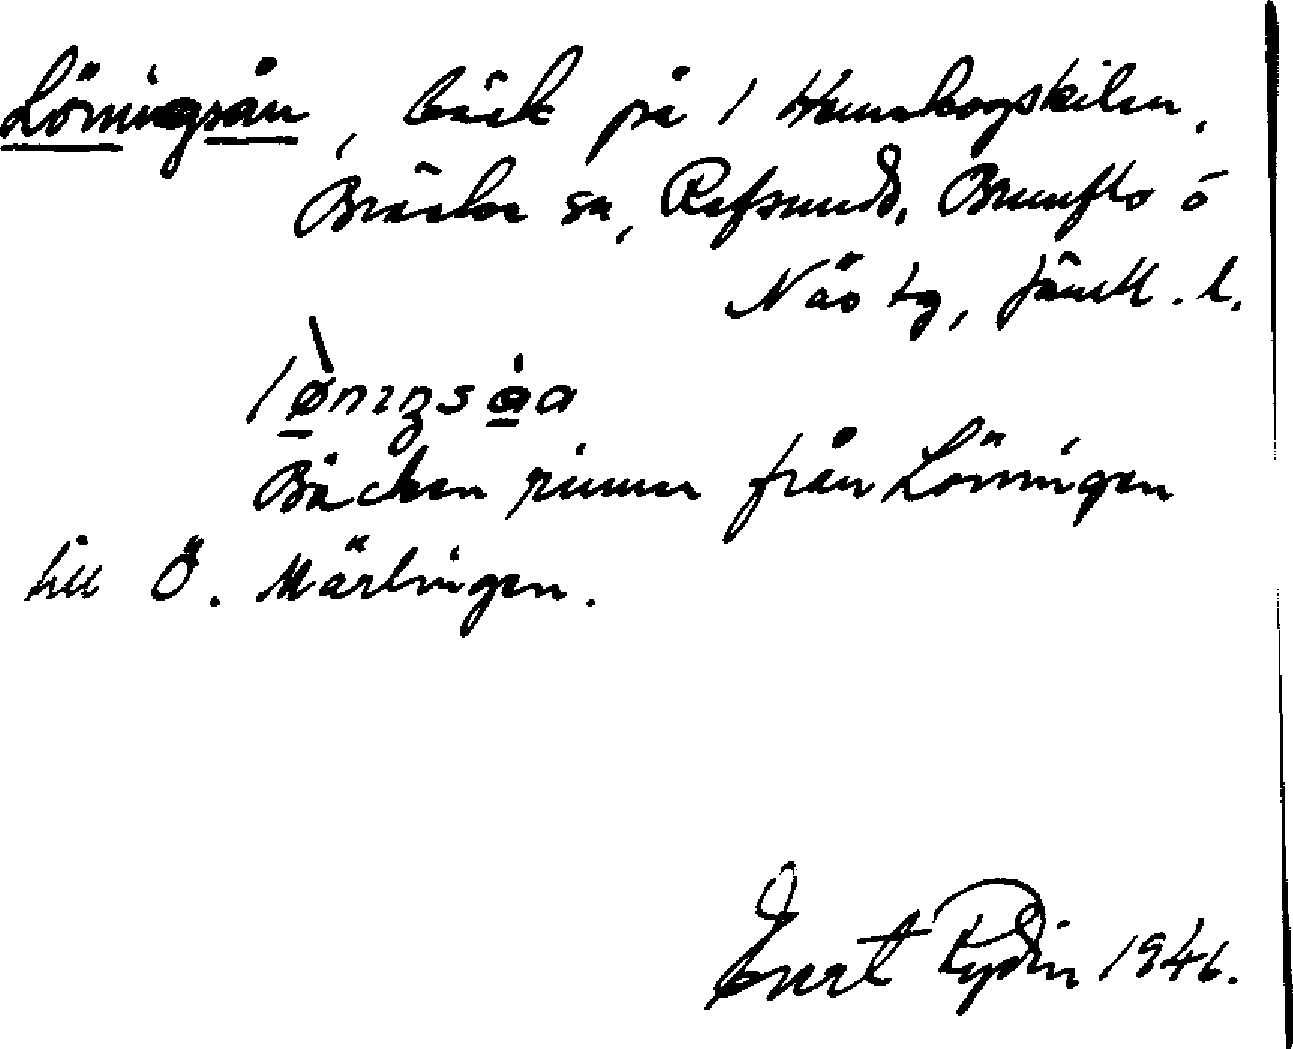 Löningsån, bäck på 1 Hunsbergskilen,
Bräcke sn, Refsund, Brunflo o
Näs tg, Jämtl. l.
lø̀nıŋså̱a
Bäcken rinner från Löningen
till Ö. Märlingen.
Evert Rydin 1946.